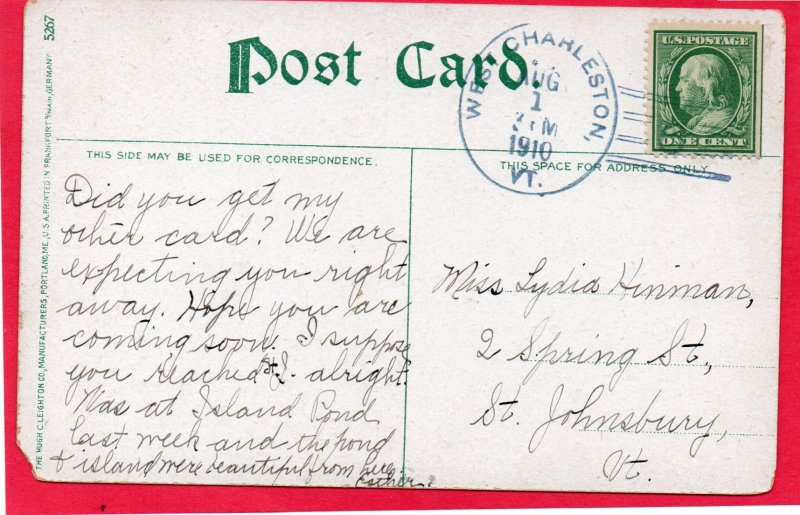 5267
Post Card.
WEST CHARLESTON,
AUG
1
M
1910
VT.
U.S. POSTAGE
ONE CENT
THIS SIDE MAY BE USED FOR CORRESPONDENCE.
THIS SPACE FOR ADDRESS ONLY.
THE HUGH C. LEIGHTON CO., MANUFACTURERS, PORTLAND, ME., U.S.A. PRINTED IN FRANKFORT o/MAIN, GERMANY
Did you get my
other card? We are
expecting you right
away. Hope you are
coming soon. I suppose
you reached St. J. alright.
Was at Island Pond
last week and the pond
& island were beautiful from
Esther.
Miss Lydia Hinman,
2 Spring St.,
St. Johnsbury,
Vt.